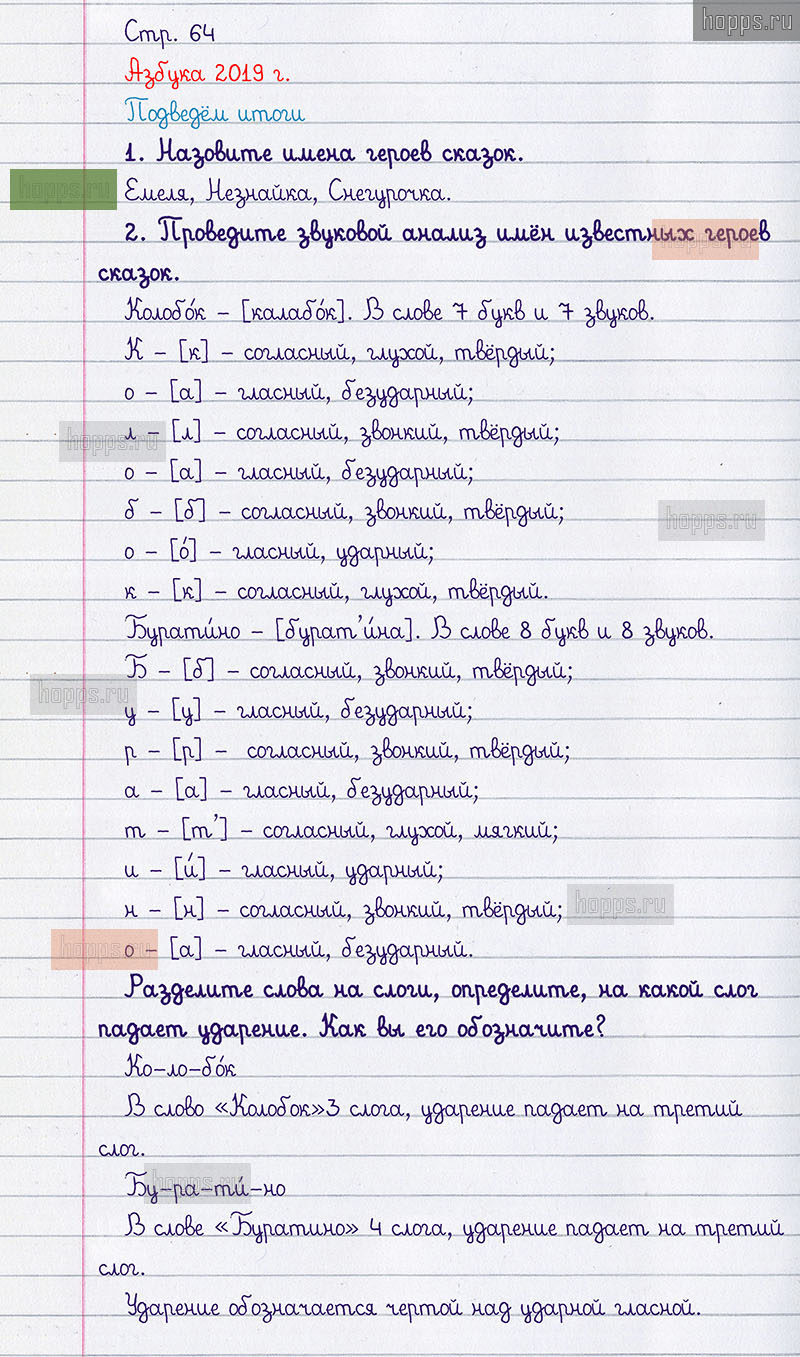 hopps.ru
Стр. 64
Азбука 2019 г.
Подведём итоги
1. Назовите имена героев сказок.
hopps.ru
Емеля, Незнайка, Снегурочка.
2. Проведите звуковой анализ имён известных героев
hopps.ru
сказок.
Колобо́к – [калабо́к]. В слове 7 букв и 7 звуков.
К – [к] – согласный, глухой, твёрдый;
о – [а] – гласный, безударный;
л – [л] – согласный, звонкий, твёрдый;
hopps.ru
о – [а] – гласный, безударный;
б – [б] – согласный, звонкий, твёрдый;
hopps.ru
о – [о́] – гласный, ударный;
к – [к] – согласный, глухой, твёрдый.
Бурати́но – [бурат’и́на]. В слове 8 букв и 8 звуков.
Б – [б] – согласный, звонкий, твёрдый;
hopps.ru
у – [у] – гласный, безударный;
р – [р] – согласный, звонкий, твёрдый;
а – [а] – гласный, безударный;
т – [т’] – согласный, глухой, мягкий;
и – [и́] – гласный, ударный;
н – [н] – согласный, звонкий, твёрдый;
hopps.ru
о – [а] – гласный, безударный.
hopps.ru
Разделите слова на слоги, определите, на какой слог
падает ударение. Как вы его обозначите?
Ко-ло-бо́к
В слово «Колобок»3 слога, ударение падает на третий
слог.
Бу-ра-ти́-но
hopps.ru
В слове «Буратино» 4 слога, ударение падает на третий
слог.
Ударение обозначается чертой над ударной гласной.